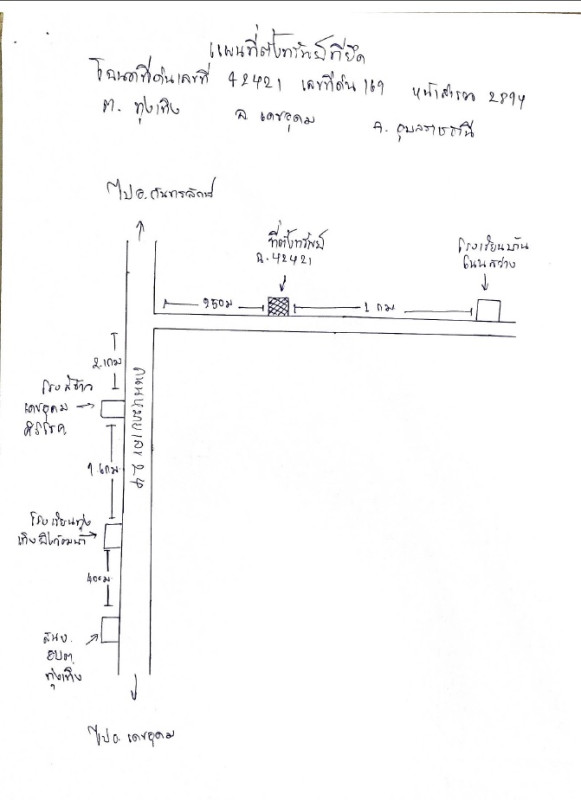 แผนที่ตั้งทรัพย์ที่ยึด
โฉนดที่ดินเลขที่ 42421 เลขที่ดิน 169 หน้าสำรวจ 2894
ต. ทุ่งเทิง อ. เดชอุดม จ. อุบลราชธานี
ไป อ. กันทรลักษ์
ที่ตั้งทรัพย์
ฉ. 42421
โรงเรียนบ้าน
โนนสว่าง
950 ม
1 กม
2 กม
โรงสีข้าว
เดชอุดม
ศิริโชค
ถนนหมายเลข 24
1 กม
โรงเรียนทุ่ง
เทิง
400 ม
สนง.
อบต.
ทุ่งเทิง
ไป อ. เดชอุดม